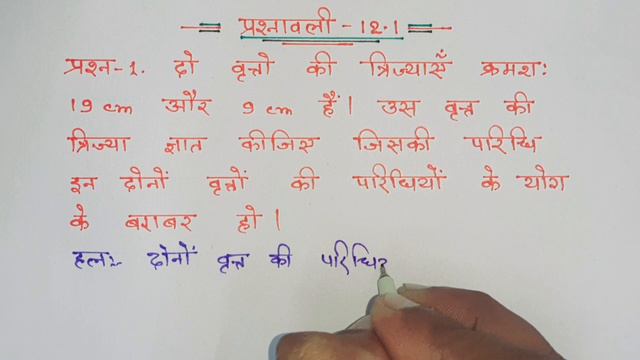 प्रश्नावली - 12.1
प्रश्न-1. दो वृत्तो की त्रिज्याएँ क्रमश:
19 cm और 9 cm हैं। उस वृत्त की
त्रिज्या ज्ञात कीजिए जिसकी परिधि
इन दोनों वृत्तों की परिधियों के योग
के बराबर हो।
हल:- दोनों वृत्त की परिधि